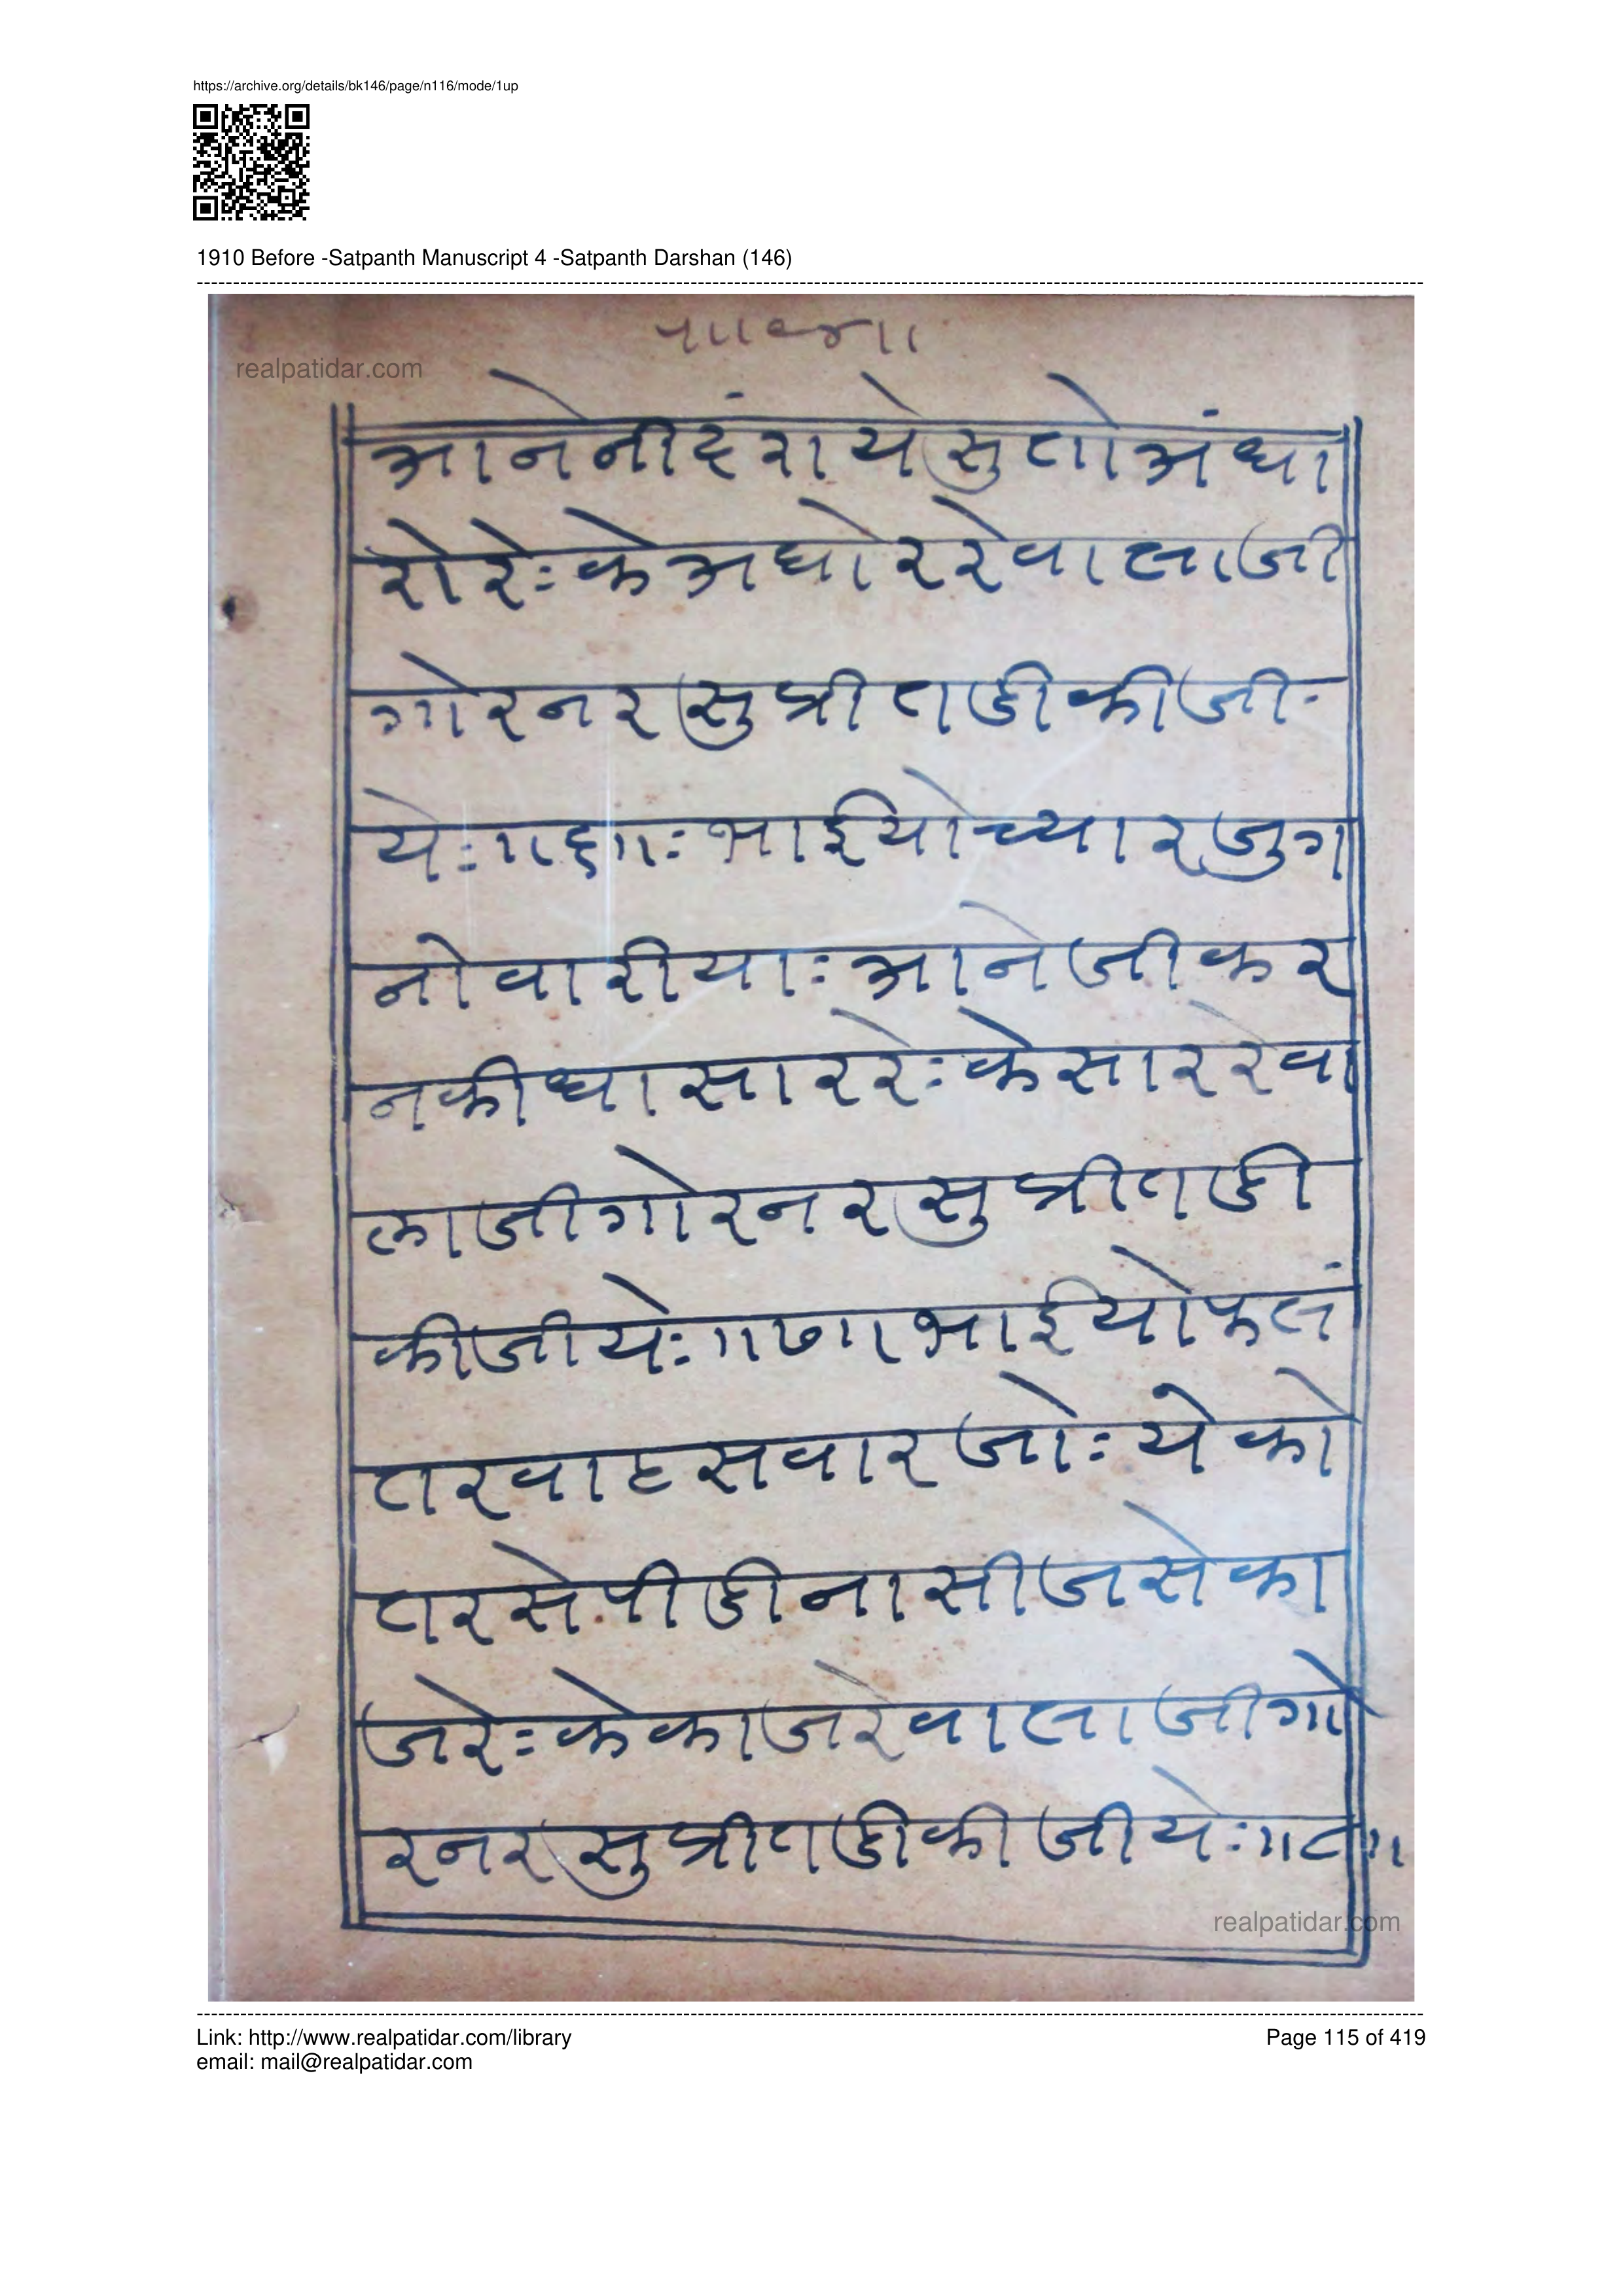 https://archive.org/details/bk146/page/n116/mode/1up
1910 Before -Satpanth Manuscript 4 -Satpanth Darshan (146)
realpatidar.com
आनेनींद्रायेसुतोअंधा
रोरेःकेअघोररेवालाजी
गोरनरसुप्रीतडीकीजी-
येः॥६॥ःभाईयोच्यारजुग
नोवारीयाःआनेजीकर
नकीधासाररेःकेसाररेवा
लाजीगोरनरसुप्रीतडी
कीजीयेः॥७॥भाईयोफलं
तरवाहसवारजोःयेको
तरसेपीडीनासीजसेका
जरेःकेकाजरेवालाजीगो
रनरसुप्रीतडीकीजीयेः॥८॥
realpatidar.com
Link: http://www.realpatidar.com/library
Page 115 of 419
email: mail@realpatidar.com